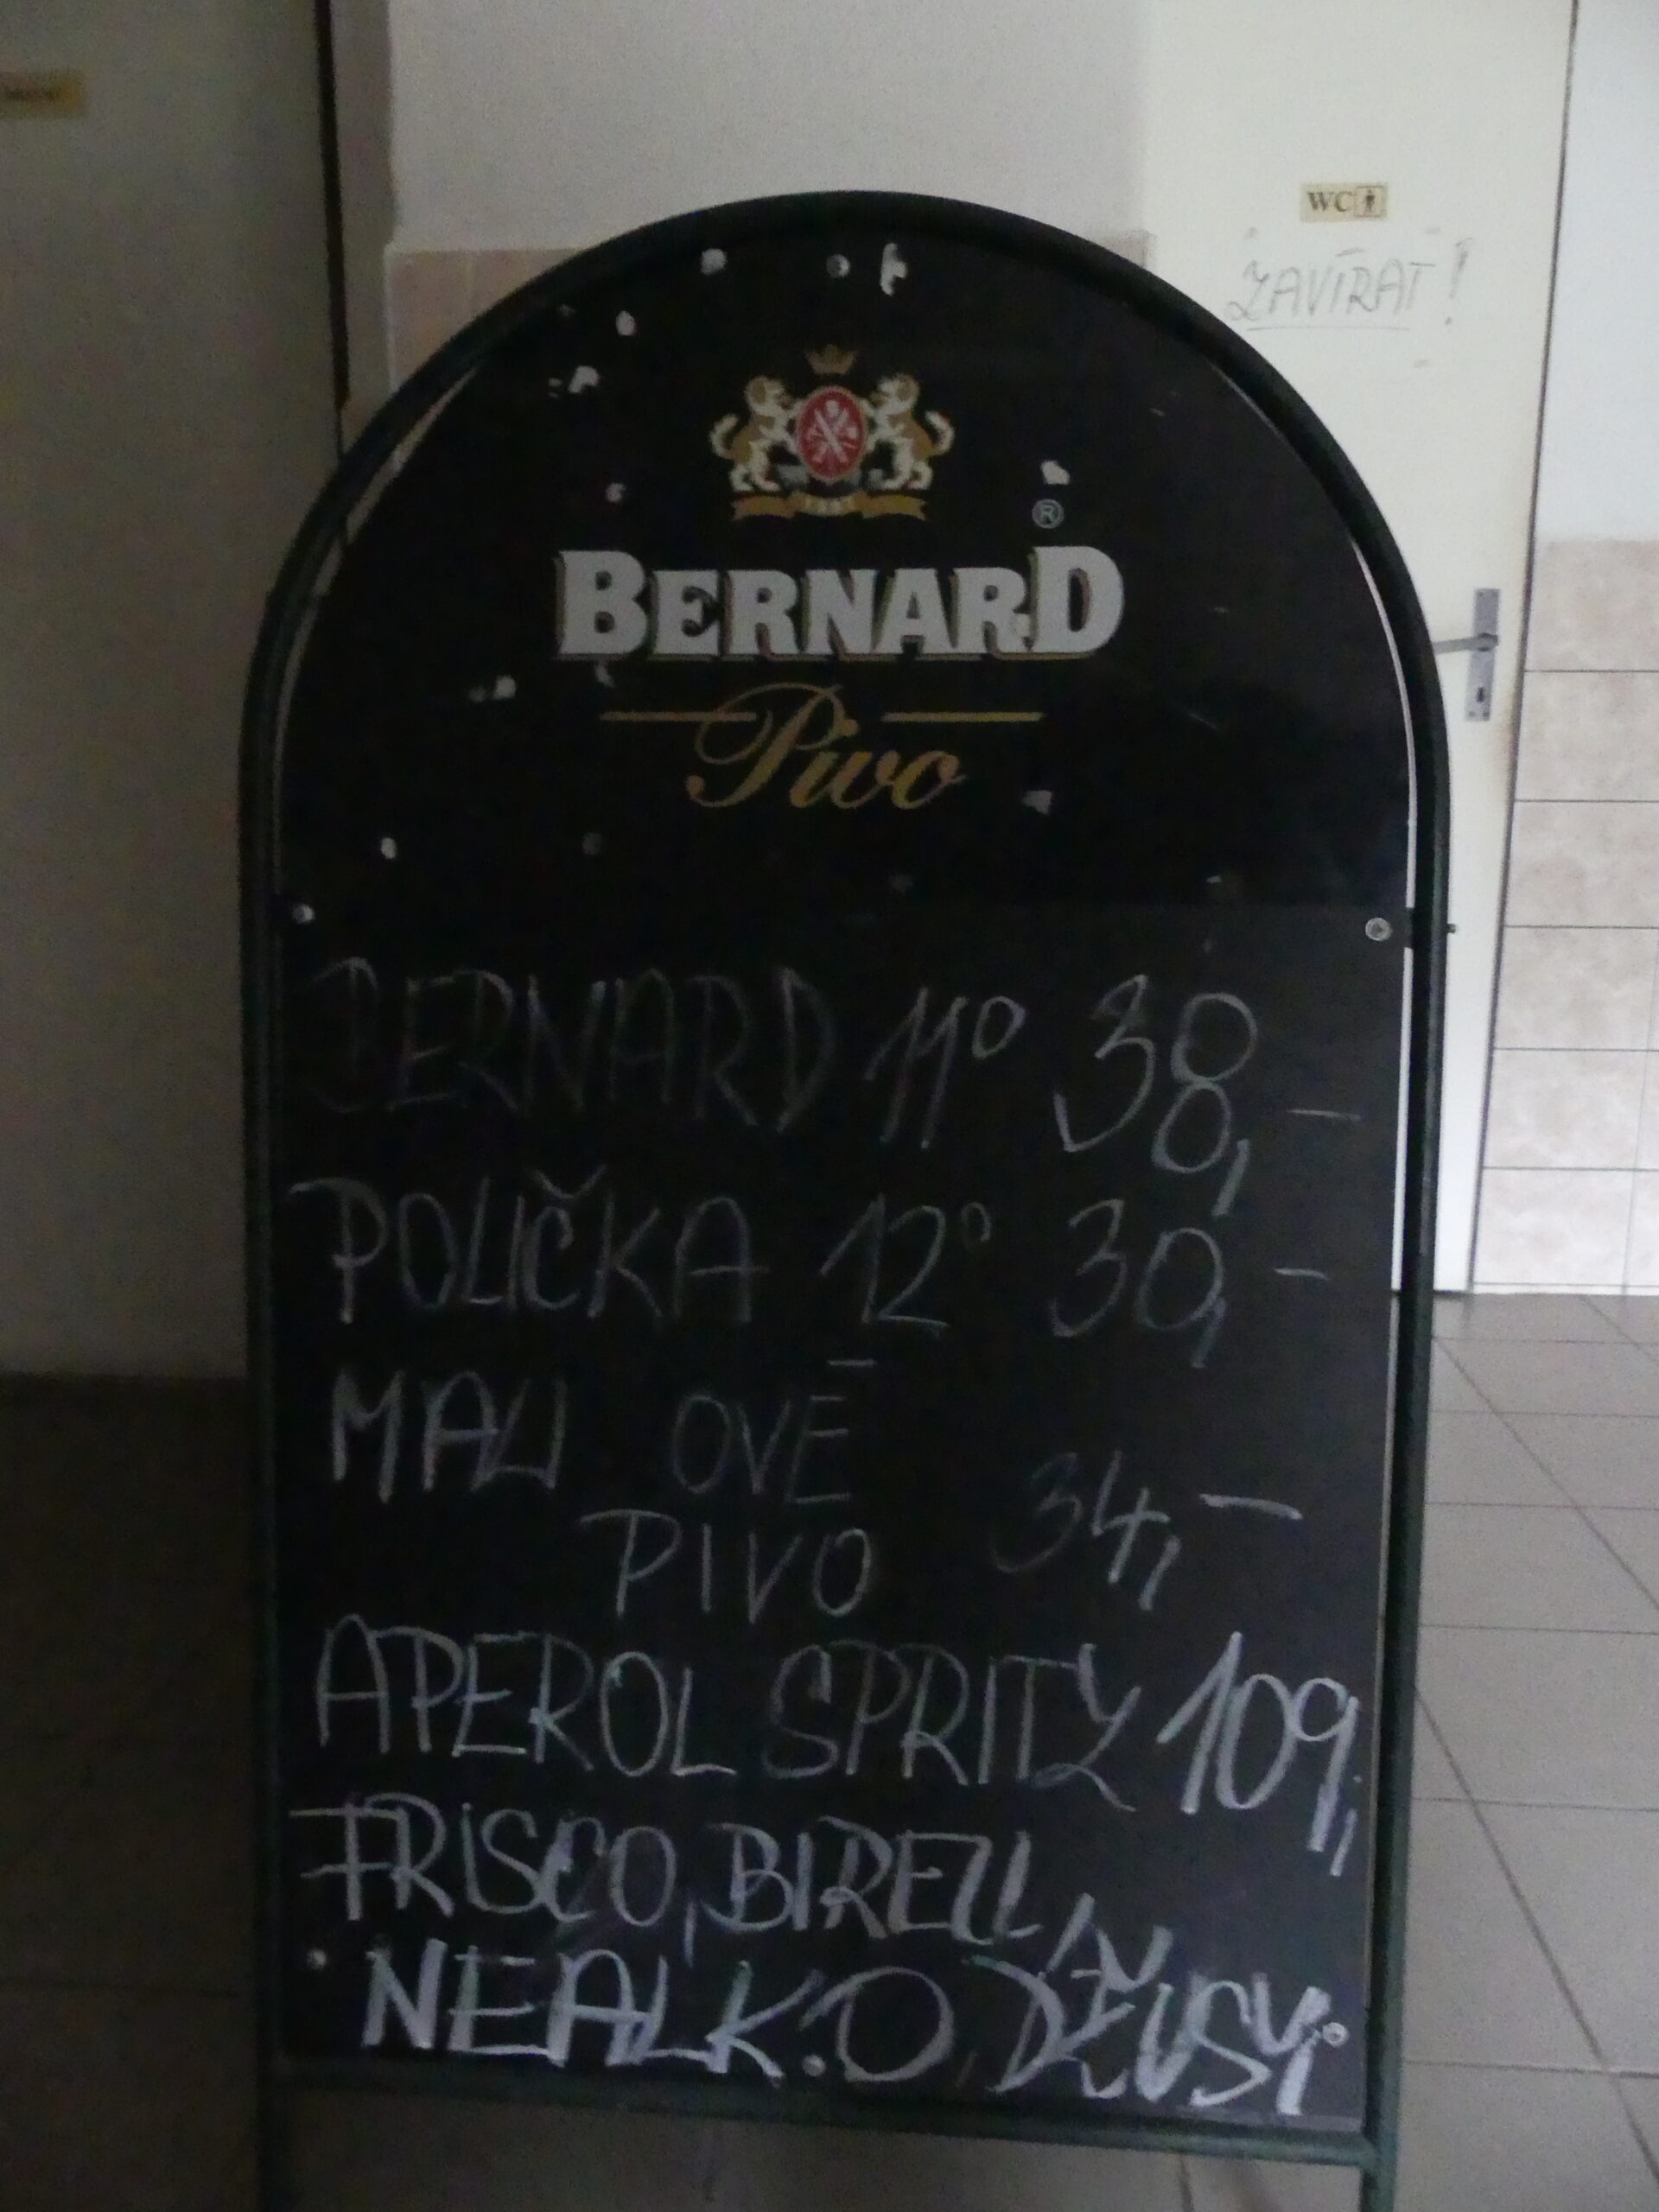 WC
ZAVÍRAT!
®
BERNARD
Pivo
BERNARD 11° 38,-
POLIČKA 12° 30,-
MALI OVÉ
PIVO 34,-
APEROL SPRITZ 109,-
FRISCO, BIRELL,
NEALKO, DŽUSY